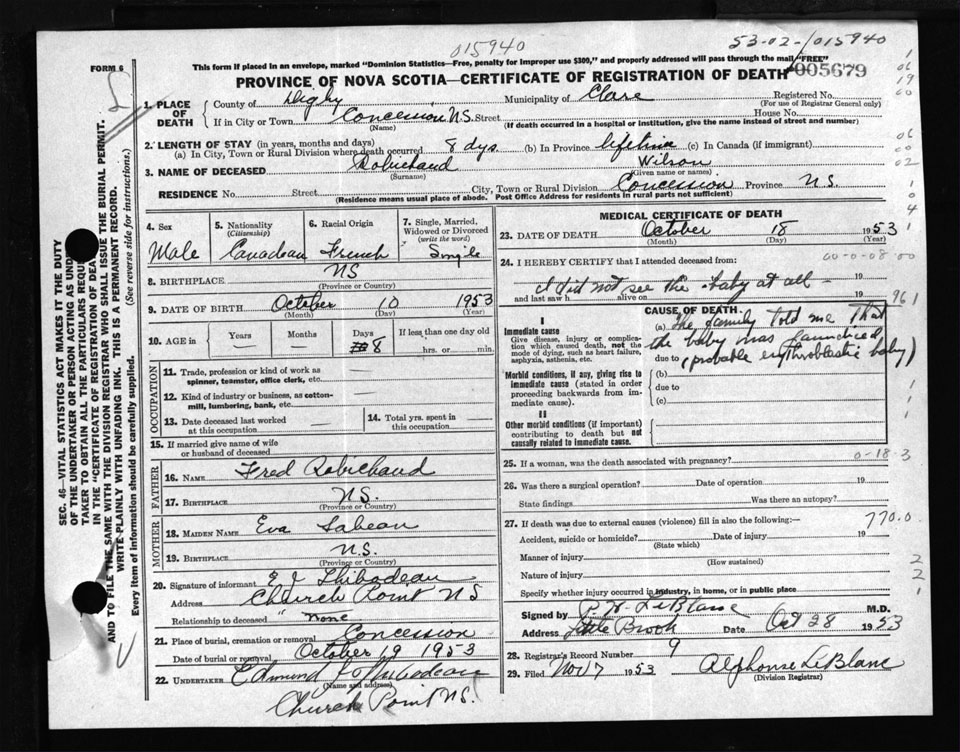 015940
53-02-/015940
FORM 6
This form if placed in an envelope, marked "Dominion Statistics—Free, penalty for improper use $300," and properly addressed will pass through the mail "FREE"
PROVINCE OF NOVA SCOTIA—CERTIFICATE OF REGISTRATION OF DEATH
005679
1. PLACE OF DEATH
County of Digby Municipality of Clare Registered No.
(For use of Registrar General only)
If in City or Town Concession N.S. Street House No.
(Name) (If death occurred in a hospital or institution, give the name instead of street and number)
2. LENGTH OF STAY (in years, months and days)
(a) In City, Town or Rural Division where death occurred 8 dys. (b) In Province lifetime (c) In Canada (if immigrant)
3. NAME OF DECEASED Robichaud Wilson
(Surname) (Given name or names)
RESIDENCE No. Street City, Town or Rural Division Concession Province N.S.
(Residence means usual place of abode. Post Office Address for residents in rural parts not sufficient)
4. Sex 5. Nationality (Citizenship) 6. Racial Origin 7. Single, Married, Widowed or Divorced (write the word)
Male Canadian French Single
8. BIRTHPLACE NS
(Province or Country)
9. DATE OF BIRTH October 10 1953
(Month) (Day) (Year)
10. AGE in Years Months Days If less than one day old
— — 8 hrs. or min.
OCCUPATION
11. Trade, profession or kind of work as spinner, teamster, office clerk, etc. —
12. Kind of industry or business, as cotton-mill, lumbering, bank, etc. —
13. Date deceased last worked at this occupation — 14. Total yrs. spent in this occupation —
15. If married give name of wife or husband of deceased
FATHER
16. NAME Fred Robichaud
17. BIRTHPLACE N.S.
(Province or Country)
MOTHER
18. MAIDEN NAME Eva Sabean
19. BIRTHPLACE N.S.
(Province or Country)
20. Signature of informant E J Thibodeau
Address Church Point NS
Relationship to deceased none
21. Place of burial, cremation or removal Concession
Date of burial or removal October 19 1953
22. UNDERTAKER Edmund J Thibodeau
(Name and address)
Church Point N.S.
MEDICAL CERTIFICATE OF DEATH
23. DATE OF DEATH October 18 1953
(Month) (Day) (Year)
24. I HEREBY CERTIFY that I attended deceased from:
00-0-08-00
I did not see the baby at all 19
and last saw h alive on 19
961
CAUSE OF DEATH.
I
Immediate cause
Give disease, injury or complication which caused death, not the mode of dying, such as heart failure, asphyxia, asthenia, etc.
(a) The family told me that
the baby was jaundiced
due to (probable erythroblastic baby)
Morbid conditions, if any, giving rise to immediate cause (stated in order proceeding backwards from immediate cause).
(b)
due to
(c)
II
Other morbid conditions (if important) contributing to death but not causally related to immediate cause.
0-18-3
25. If a woman, was the death associated with pregnancy?
26. Was there a surgical operation? Date of operation 19
State findings Was there an autopsy?
27. If death was due to external causes (violence) fill in also the following:—
770.0
Accident, suicide or homicide? Date of injury 19
(State which)
Manner of injury
(How sustained)
Nature of injury
Specify whether injury occurred in industry, in home, or in public place
Signed by P.H. LeBlanc M.D.
Address Little Brook Date Oct 28 1953
28. Registrar's Record Number 9
29. Filed Nov 7 1953 Alphonse LeBlanc
(Division Registrar)
SEC. 46—VITAL STATISTICS ACT MAKES IT THE DUTY
OF THE UNDERTAKER OR PERSON ACTING AS UNDER
TAKER TO OBTAIN ALL THE PARTICULARS REQU
IN THE "CERTIFICATE OF REGISTRATION OF DEA
AND TO FILE THE SAME WITH THE DIVISION REGISTRAR WHO SHALL ISSUE THE BURIAL PERMIT.
WRITE PLAINLY WITH UNFADING INK. THIS IS A PERMANENT RECORD.
Every item of information should be carefully supplied. (See reverse side for instructions.)